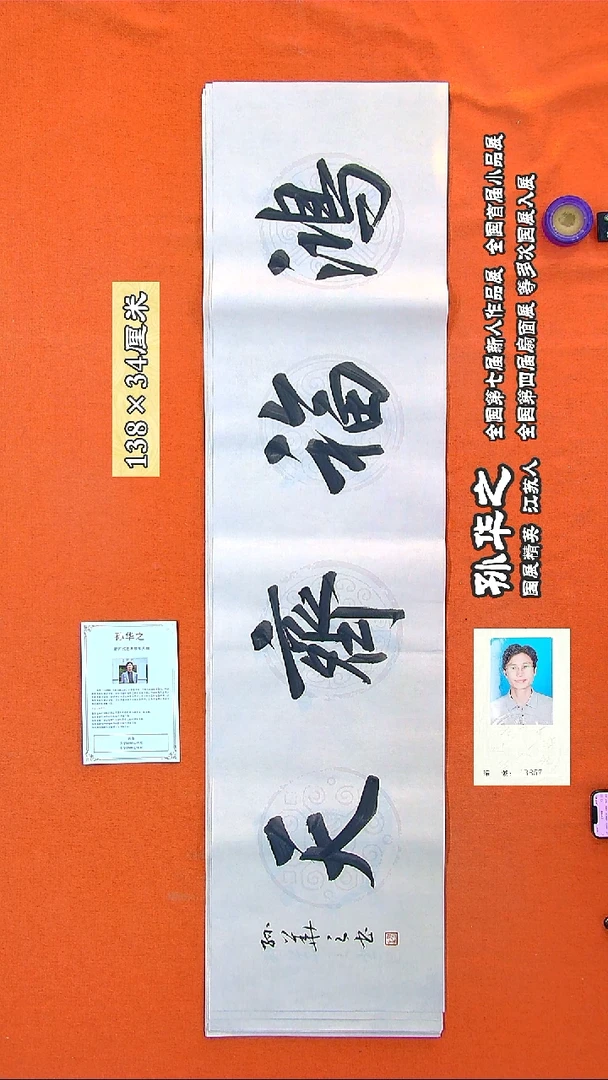 138×34厘米
鴻福齊天
孫華之书
孙华之
国展精英 江苏人
全国第七届新人作品展 全国首届小品展
全国第四届扇面展 等多次国展入展
孙华之